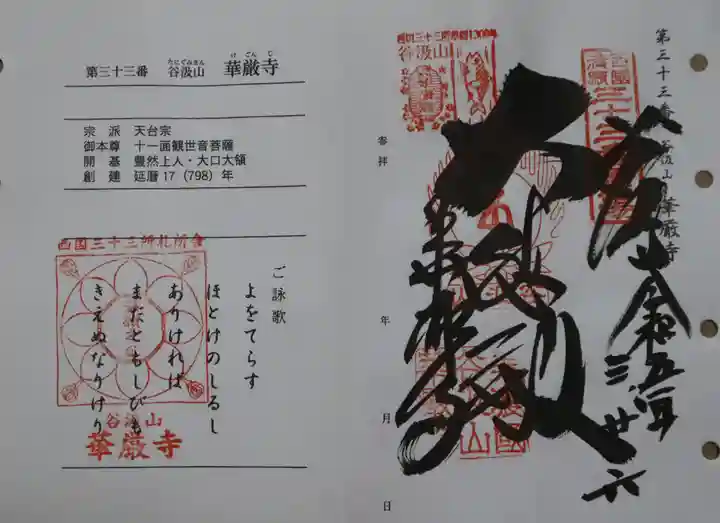 第三十三番 谷汲山 華厳寺
たにぐみさん けごんじ
宗派 天台宗
御本尊 十一面観世音菩薩
開基 豊然上人・大口大領
創建 延暦17（798）年
西国三十三所札所會
ご詠歌
よをてらす
ほとけのしるし
ありければ
まだともしびも
きえぬなりけり
谷汲山
華厳寺
第三十三番 谷汲山 華厳寺
谷汲山
令和五年
三 廿六
大悲殿
華厳寺
参拝 年 月 日
谷汲山